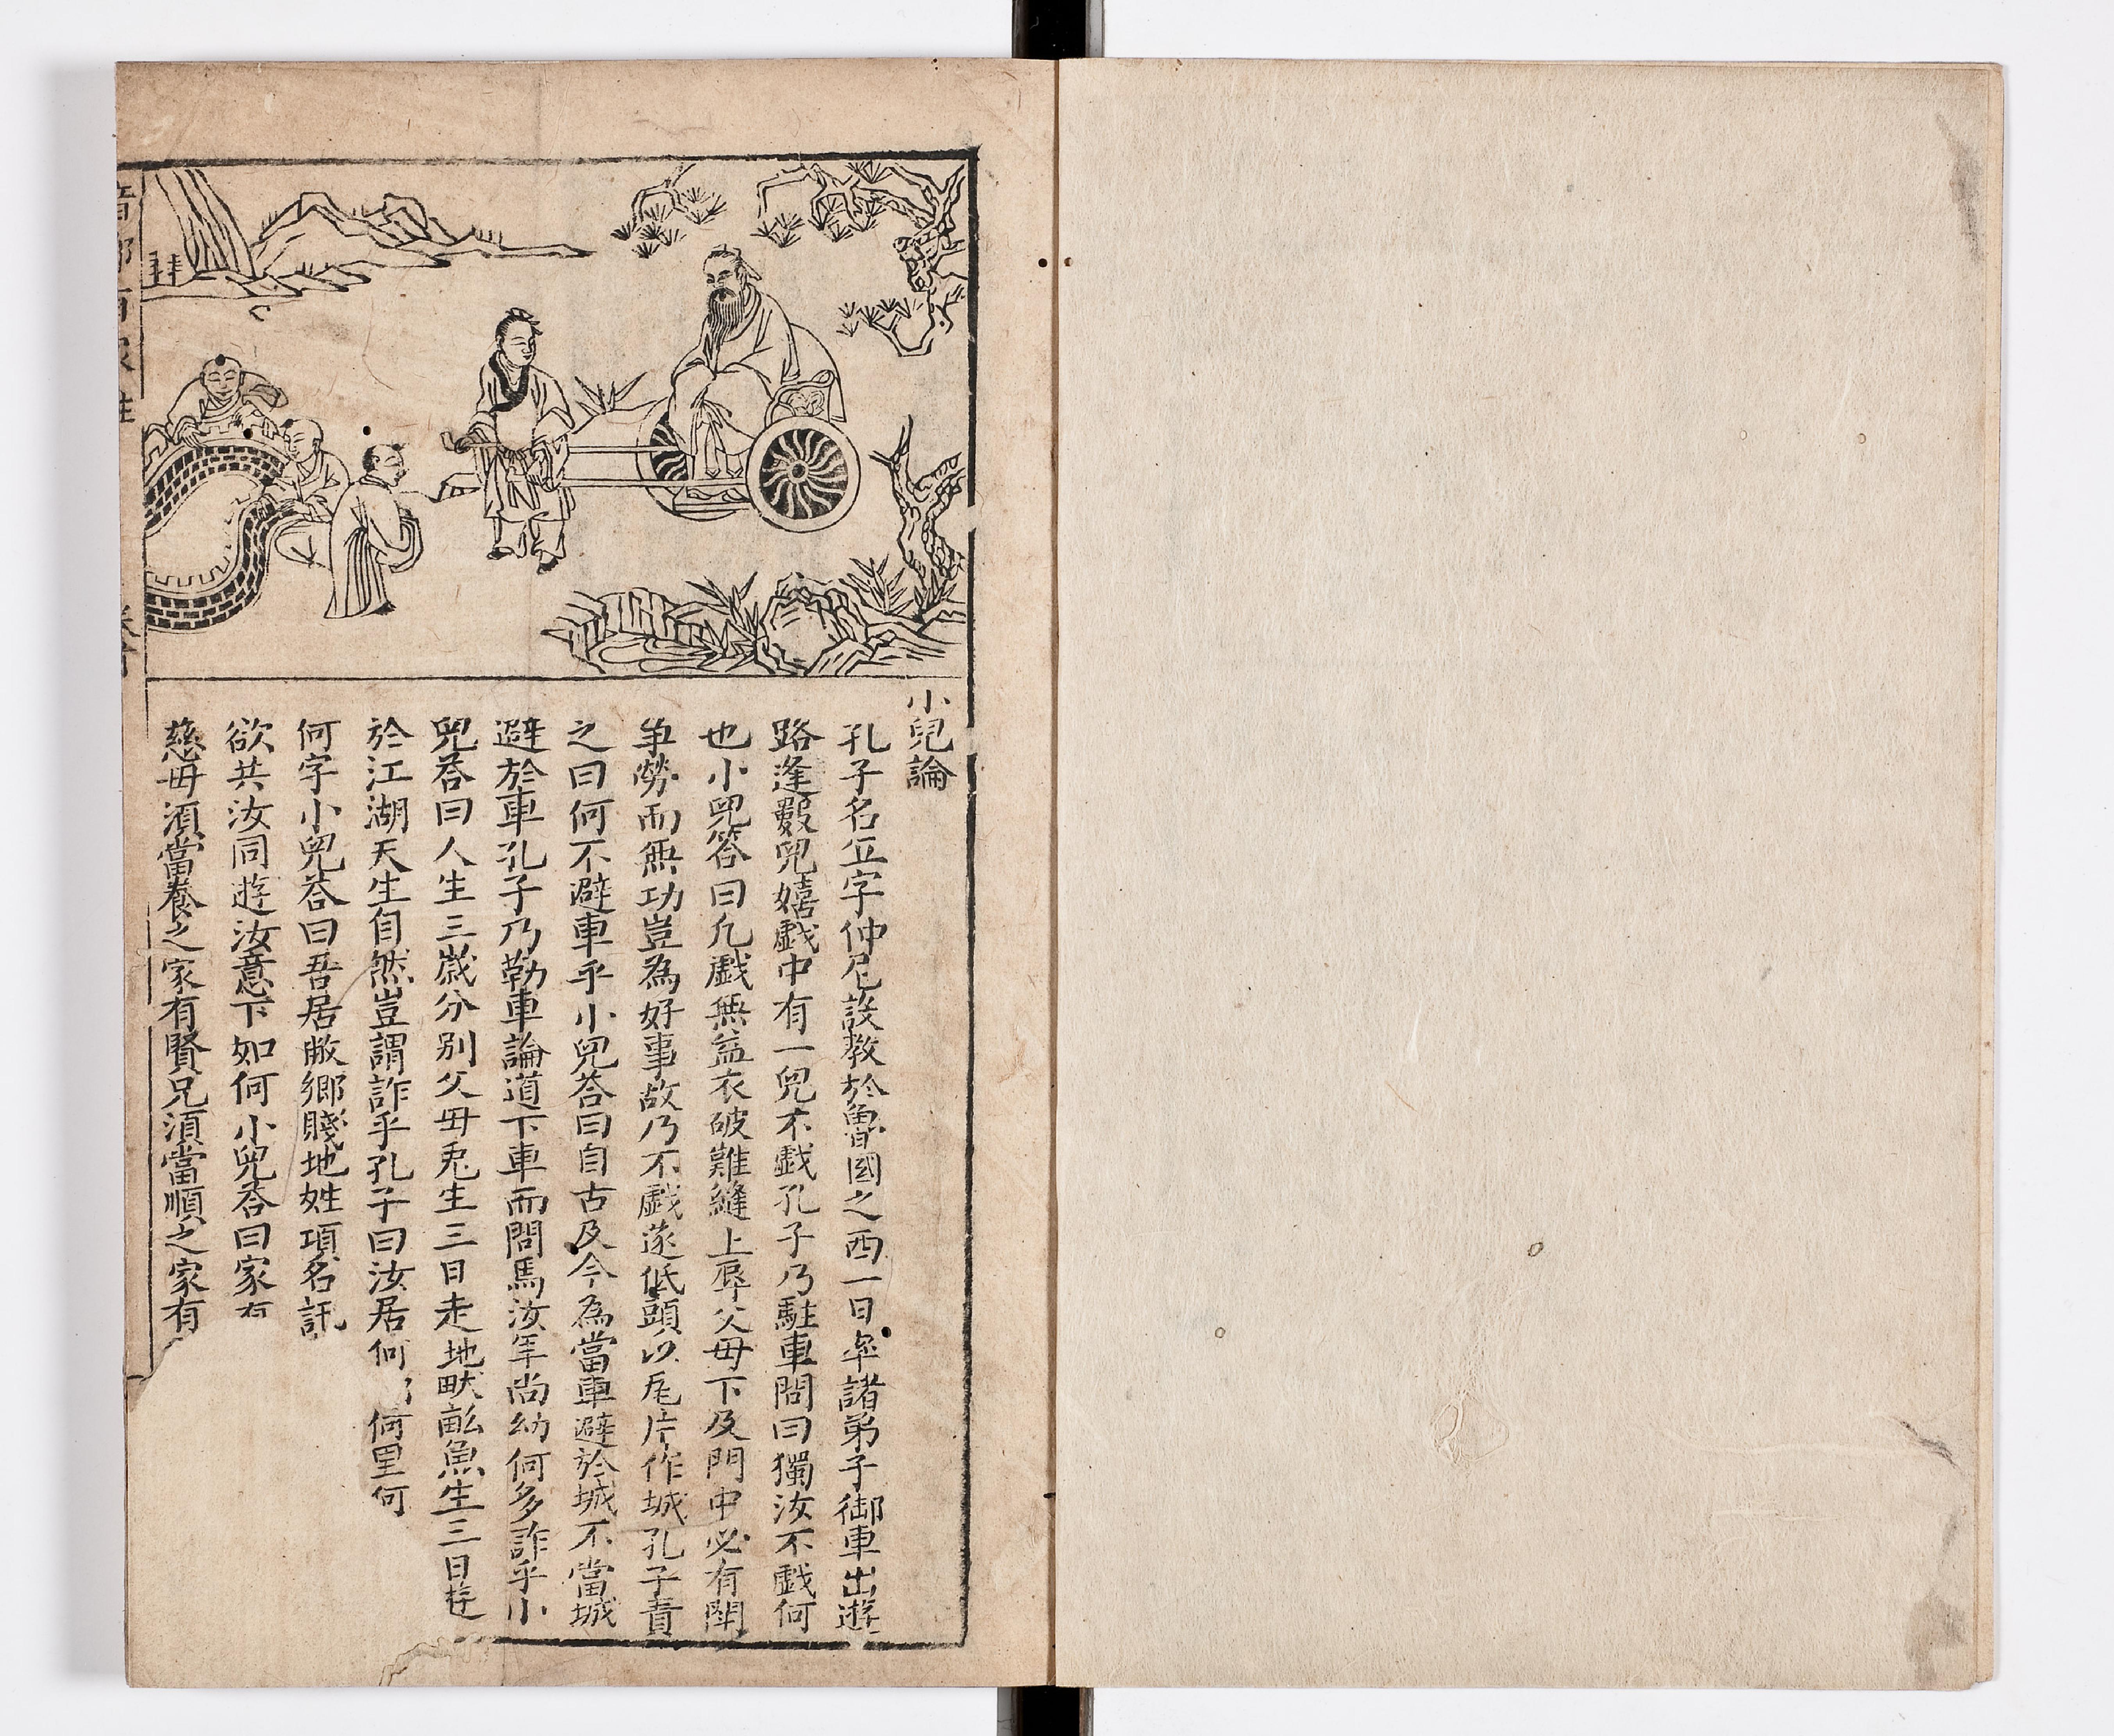 小兒論
孔子名丘字仲尼設教於魯國之西一日率諸弟子御車出遊
路逢數兒嬉戱中有一兒不戱孔子乃駐車問曰獨汝不戱何
也小兒答曰凡戱無益衣破難縫上辱父母下及門中必有鬪
争勞而無功豈為好事故乃不戱遂低頭以瓦片作城孔子責
之曰何不避車乎小兒荅曰自古及今為當車避於城不當城
避於車孔子乃勒車論道下車而問焉汝年尚幼何多詐乎小
兒荅曰人生三歲分別父母兎生三日走地畎畝魚生三日遊
於江湖天生自然豈謂詐乎孔子曰汝居何 何里何
何字小兒荅曰吾居敝鄉賤地姓項名託
欲共汝同遊汝意下如何小兒荅曰家有
慈母須當養之家有賢兄須當順之家有
百家姓